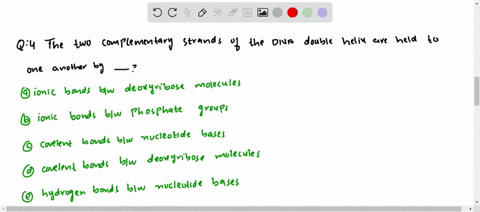 Q:4 The two complementary strands of the DNA double helix are held to
one another by __?
(a) ionic bonds b/w deoxyribose molecules
(b) ionic bonds b/w phosphate groups
(c) covelent bonds b/w nucleotide bases
(d) covelent bonds b/w deoxyribose molecules
(e) hydrogen bonds b/w nucleotide bases